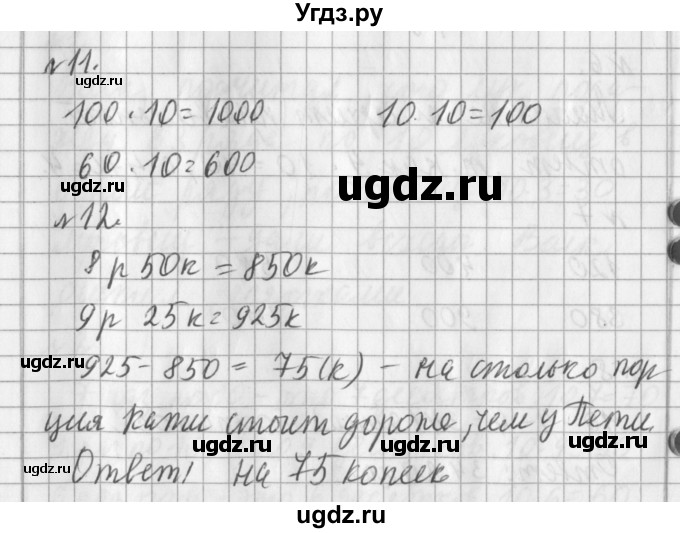 Угдз.ру
№11.
ugdz.ru
100 · 10 = 1000 10 · 10 = 100
60 · 10 = 600
ugdz.ru
ugdz.ru
№12.
8 р 50к = 850к
9р 25к = 925к
ugdz.ru
ugdz.ru
925 - 850 = 75(к) - на столько пор
ugdz.ru
ция Кати стоит дороже, чем у Пети.
ugdz.ru
ugdz.ru
Ответ: на 75 копеек
ugdz.ru